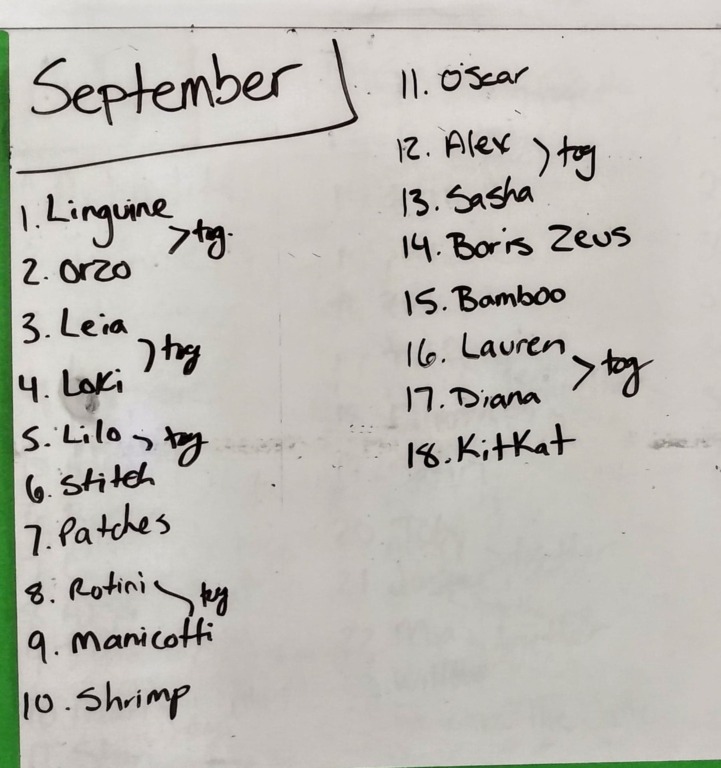 September
1. Linguine
> tog.
2. Orzo
3. Leia
) tog
4. Loki
5. Lilo tog
6. Stitch
7. Patches
8. Rotini tog
9. Manicotti
10. Shrimp
11. Oscar
12. Alex ) tog
13. Sasha
14. Boris Zeus
15. Bamboo
16. Lauren
> tog
17. Diana
18. KitKat